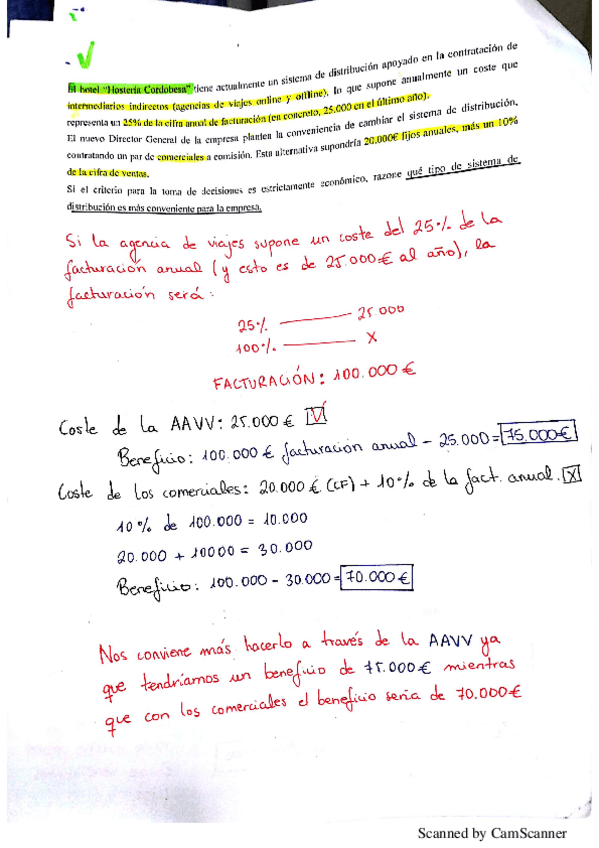 El hotel "Hostería Cordobesa" tiene actualmente un sistema de distribución apoyado en la contratación de
intermediarios indirectos (agencias de viajes online y offline), lo que supone anualmente un coste que
representa un 25% de la cifra anual de facturación (en concreto, 25.000 en el último año).
El nuevo Director General de la empresa plantea la conveniencia de cambiar el sistema de distribución,
contratando un par de comerciales a comisión. Esta alternativa supondría 20.000€ fijos anuales, más un 10%
de la cifra de ventas.
Si el criterio para la toma de decisiones es estrictamente económico, razone qué tipo de sistema de
distribución es más conveniente para la empresa.
Si la agencia de viajes supone un coste del 25% de la
facturación anual (y esto es de 25.000€ al año), la
facturación será:
25% 25.000
100% X
FACTURACIÓN: 100.000 €
Coste de la AAVV: 25.000 € V
Beneficio: 100.000 € facturación anual - 25.000 = 75.000€
Coste de los comerciales: 20.000 € (CF) + 10% de la fact. anual. X
10% de 100.000 = 10.000
20.000 + 10000 = 30.000
Beneficio: 100.000 - 30.000 = 70.000 €
Nos conviene más hacerlo a través de la AAVV ya
que tendríamos un beneficio de 75.000€ mientras
que con los comerciales el beneficio sería de 70.000€
Scanned by CamScanner